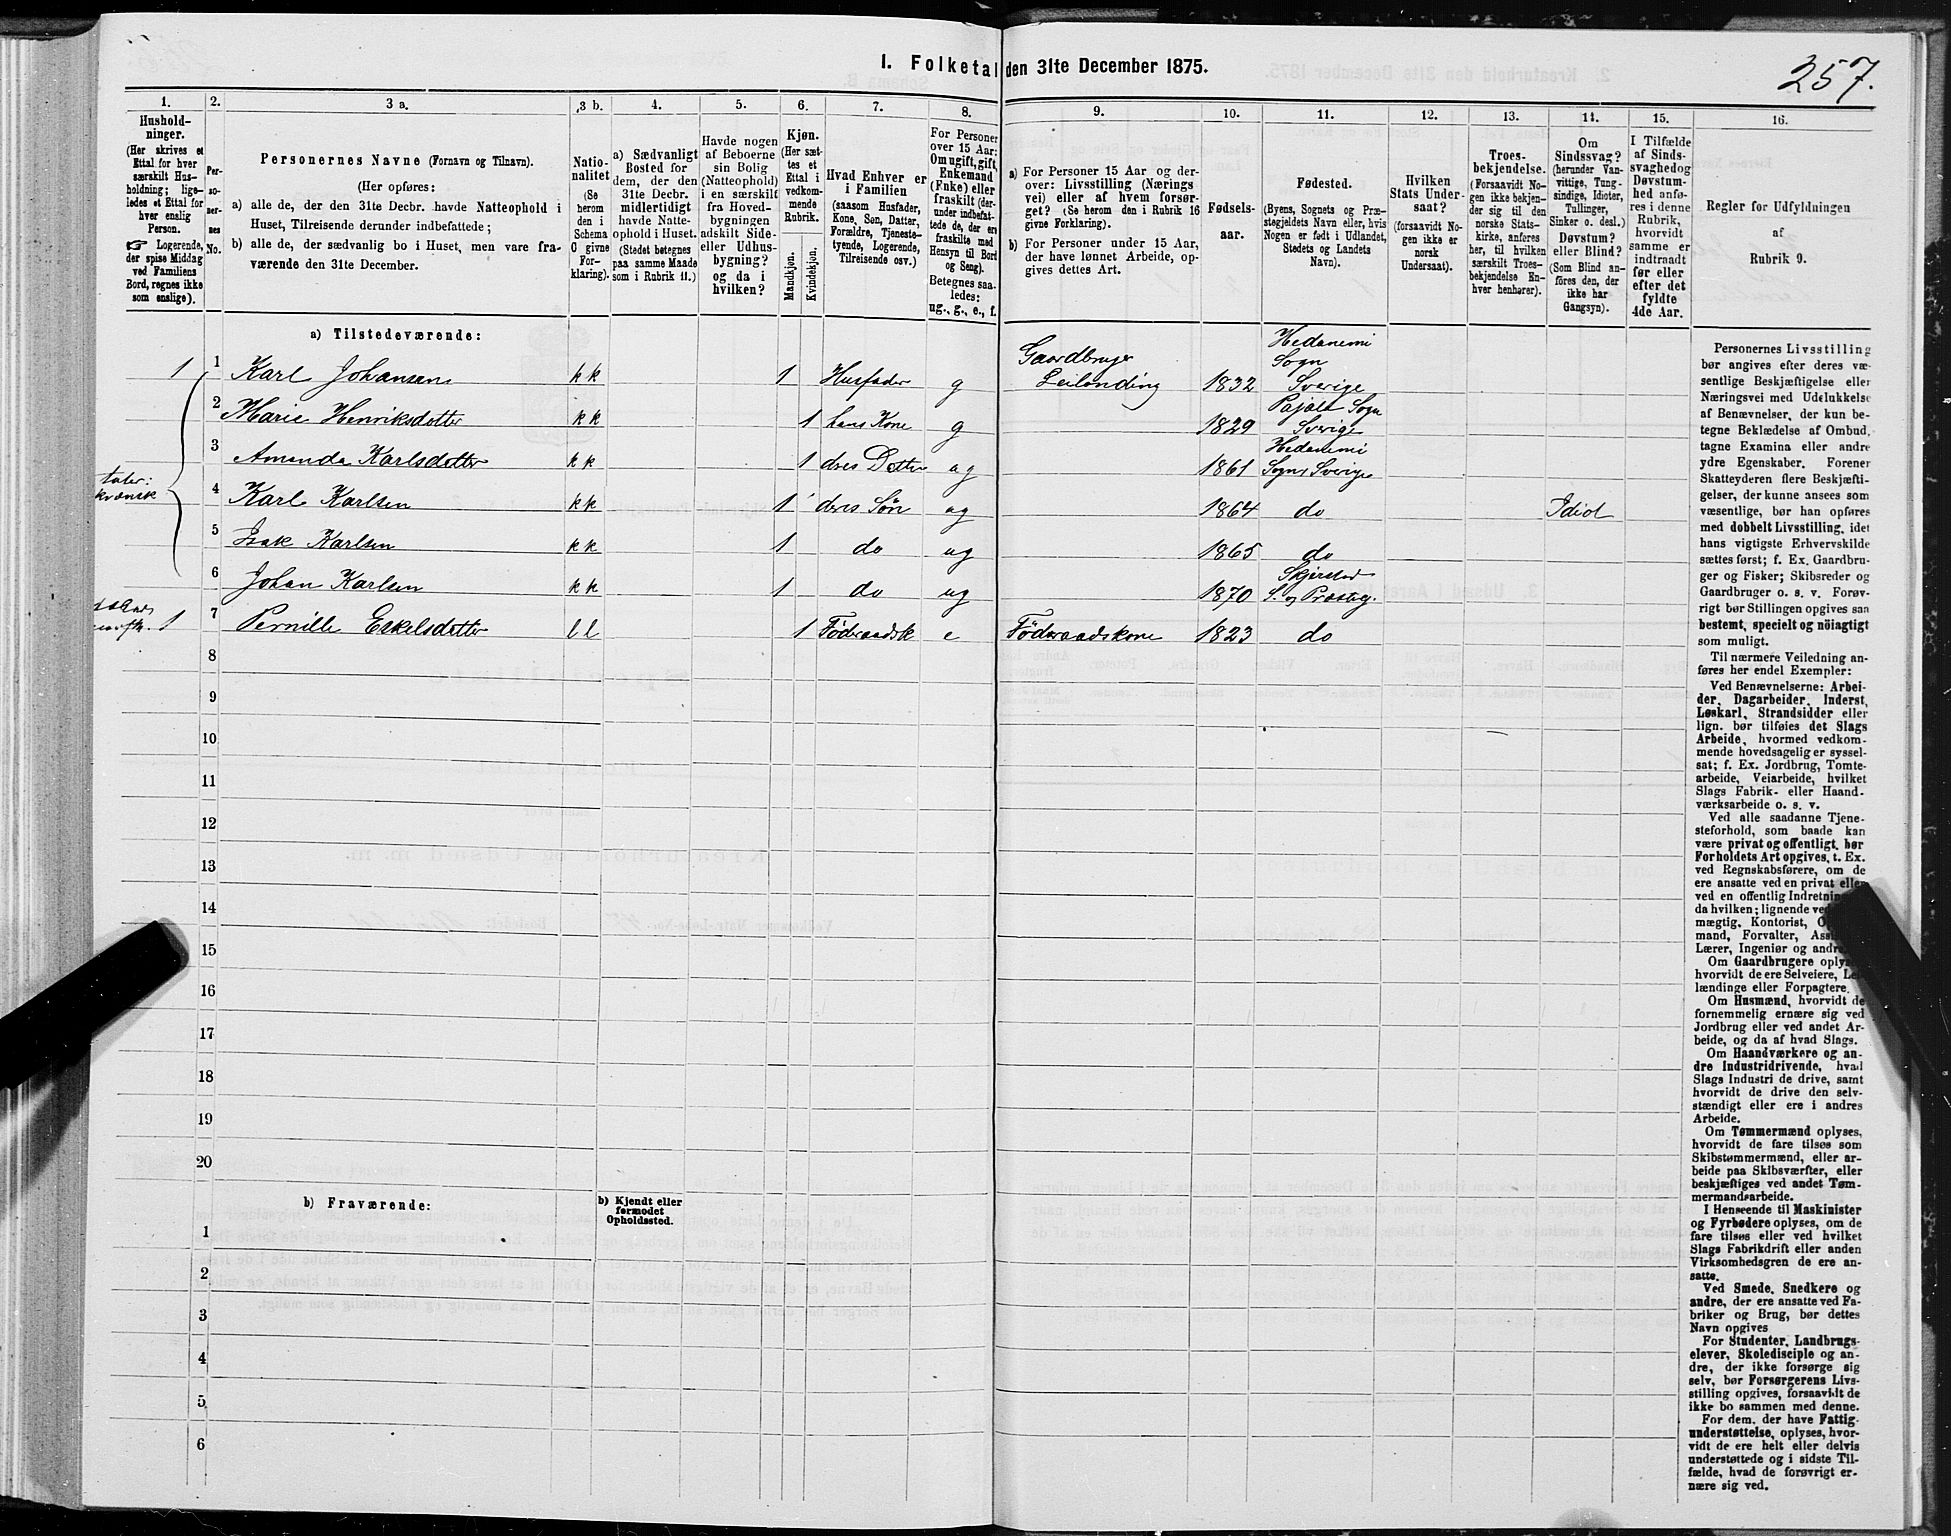 1. Folketal den 31te December 1875.
257.
1. 2. 3 a. 3 b. 4. 5. 6. 7. 8. 9. 10. 11. 12. 13. 14. 15. 16.
Hushold-
ninger.
(Her skrives et
Ettal for hver
særskilt Hus-
holdning; lige-
ledes et Ettal for
hver enslig
Person.
☞ Logerende,
der spise Middag
ved Familiens
Bord, regnes ikke
som enslige).
Per-
so-
ner-
nes
No.
Personernes Navne (Fornavn og Tilnavn).
(Her opføres:
a) alle de, der den 31te Decbr. havde Natteophold i
Huset, Tilreisende derunder indbefattede;
b) alle de, der sædvanlig bo i Huset, men vare fra-
værende den 31te December.
Natio-
nalitet
(Se
herom
den i
Schema
C givne
For-
klaring).
a) Sædvanligt
Bosted for
dem, der den
31te Decbr.
midlertidigt
havde Natte-
ophold i Huset.
(Stedet betegnes
paa samme Maade
som i Rubrik 11.)
Havde nogen
af Beboerne
sin Bolig
(Natteophold)
i en særskilt
fra Hoved-
bygningen
adskilt Side-
eller Udhus-
bygning?
og da i
hvilken?
Kjøn.
(Her sæt-
tes et
Ettal i
vedkom-
mende
Rubrik.
Mandkjøn.
Kvindekjøn.
Hvad Enhver er
i Familien
(saasom Husfader,
Kone, Søn, Datter,
Forældre, Tjeneste-
tyende, Logerende,
Tilreisende osv.)
For Personer
over 15 Aar:
Om ugift, gift,
Enkemand
(Enke) eller
fraskilt (der-
under indbefat-
tede de, der ere
fraskilte med
Hensyn til Bord
og Seng).
Betegnes saa-
ledes:
ug., g., e., f.
a) For Personer 15 Aar og der-
over: Livsstilling (Nærings
vei) eller af hvem forsør-
get? (Se herom den i Rubrik 16
givne Forklaring).
b) For Personer under 15 Aar,
der have lønnet Arbeide, op-
gives dettes Art.
Fødsels-
aar.
Fødested.
(Byens, Sognets og Præ-
stegjeldets Navn eller, hvis
Nogen er født i Udlandet,
Stedets og Landets
Navn).
Hvilken
Stats Under-
saat?
(forsaavidt No-
gen ikke er
norsk
Undersaat).
Troes-
bekjendelse.
(Forsaavidt No-
gen ikke bekjen-
der sig til den
norske Stats-
kirke, anføres
her, til hvilken
særskilt Troes-
bekjendelse En-
hver henhører).
Om
Sindssvag?
(herunder Van-
vittige, Tung-
sindige, Idioter,
Tullinger,
Sinker o. desl.)
Døvstum?
eller Blind?
(Som Blind an-
føres den, der
ikke har
Gangsyn).
I Tilfælde
af Sinds-
svaghed og
Døvstum-
hed anfø-
res i denne
Rubrik,
hvorvidt
samme er
indtraadt
før eller
efter det
fyldte
4de Aar.
Regler for Udfyldningen
af
Rubrik 9.
a) Tilstedeværende:
1 1 Karl Johansen kk 1 Husfader g Gaardbruger Leilending 1832 Hedanemi Sogn Sverige
2 Marie Henriksdatter kk 1 hans Kone g 1829 Pajala Sogn Sverige
3 Amanda Karlsdatter kk 1 deres Datter ug 1861 Hedanemi Sogn Sverige
taler:
kvænsk
4 Karl Karlsen kk 1 deres Søn ug 1864 do Idiot
5 Isak Karlsen kk 1 do ug 1865 do
6 Johan Karlsen kk 1 do ug 1870 Skjerstad S. og Præstegj.
1 7 Pernille Eskelsdatter ll 1 Föderaadsk e Föderaadskone 1823 do
8
9
10
11
12
13
14
15
16
17
18
19
20
b) Fraværende:
b) Kjendt eller
formodet
Opholdssted.
1
2
3
4
5
6
Personernes Livsstilling
bør angives efter deres væ-
sentlige Beskjæftigelse eller
Næringsvei med Udelukkelse
af Benævnelser, der kun be-
tegne Beklædelse af Ombud,
tagne Examina eller andre
ydre Egenskaber. Forener
Skatteyderen flere Beskjæfti-
gelser, der kunne ansees som
væsentlige, bør han opføres
med dobbelt Livsstilling, idet
hans vigtigste Erhvervskilde
sættes først; f. Ex. Gaardbru-
ger og Fisker; Skibsreder og
Gaardbruger o. s. v. Forøv-
rigt bør Stillingen opgives saa
bestemt, specielt og nöiagtigt
som muligt.
Til nærmere Veiledning an-
føres her endel Exempler:
Ved Benævnelserne: Arbei-
der, Dagarbeider, Inderst,
Løskarl, Strandsidder eller
lign. bør tilføies det Slags
Arbeide, hvormed vedkom-
mende hovedsagelig er syssel-
sat; f. Ex. Jordbrug, Tomte-
arbeide, Veiarbeide, hvilket
Slags Fabrik- eller Haand-
værksarbeide o. s. v.
Ved alle saadanne Tjene-
steforhold, som baade kan
være privat og offentligt, bør
Forholdets Art opgives, t. Ex.
ved Regnskabsførere, om de
ere ansatte ved en privat eller
ved en offentlig Indretning
da hvilken; lignende ved
mægtig, Kontorist,
mand, Forvalter,
Lærer, Ingeniør og andre.
Om Gaardbrugere oplyses
hvorvidt de ere Selveiere, Lei-
lændinge eller Forpagtere.
Om Husmænd, hvorvidt de
fornemmelig ernære sig ved
Jordbrug eller ved andet Ar-
beide, og da af hvad Slags.
Om Haandværkere og an-
dre Industridrivende, hvad
Slags Industri de drive, samt
hvorvidt de drive den selv-
stændigt eller ere i andres
Arbeide.
Om Tømmermænd oplyses,
hvorvidt de fare tilsøs som
Skibstømmermænd, eller ar-
beide paa Skibsværfter, eller
beskjæftiges ved andet Tøm-
mermandsarbeide.
I Henseende til Maskinister
og Fyrbødere oplyses, om de
fare tilsøs eller ved hvilket
Slags Fabrikdrift eller anden
Virksomhedsgren de ere an-
satte.
Ved Smede, Snedkere og
andre, der ere ansatte ved Fa-
briker og Brug, bør dettes
Navn opgives
For Studenter, Landbrugs-
elever, Skoledisciple og an-
dre, der ikke forsørge sig
selv, bør Forsørgerens Livs-
stilling opgives, forsaavidt de
ikke bo sammen med denne.
For dem, der have Fattig-
understøttelse, oplyses, hvor-
vidt de ere helt eller delvis
understøttede og i sidste Til-
fælde, hvad de forøvrigt er-
nære sig ved.